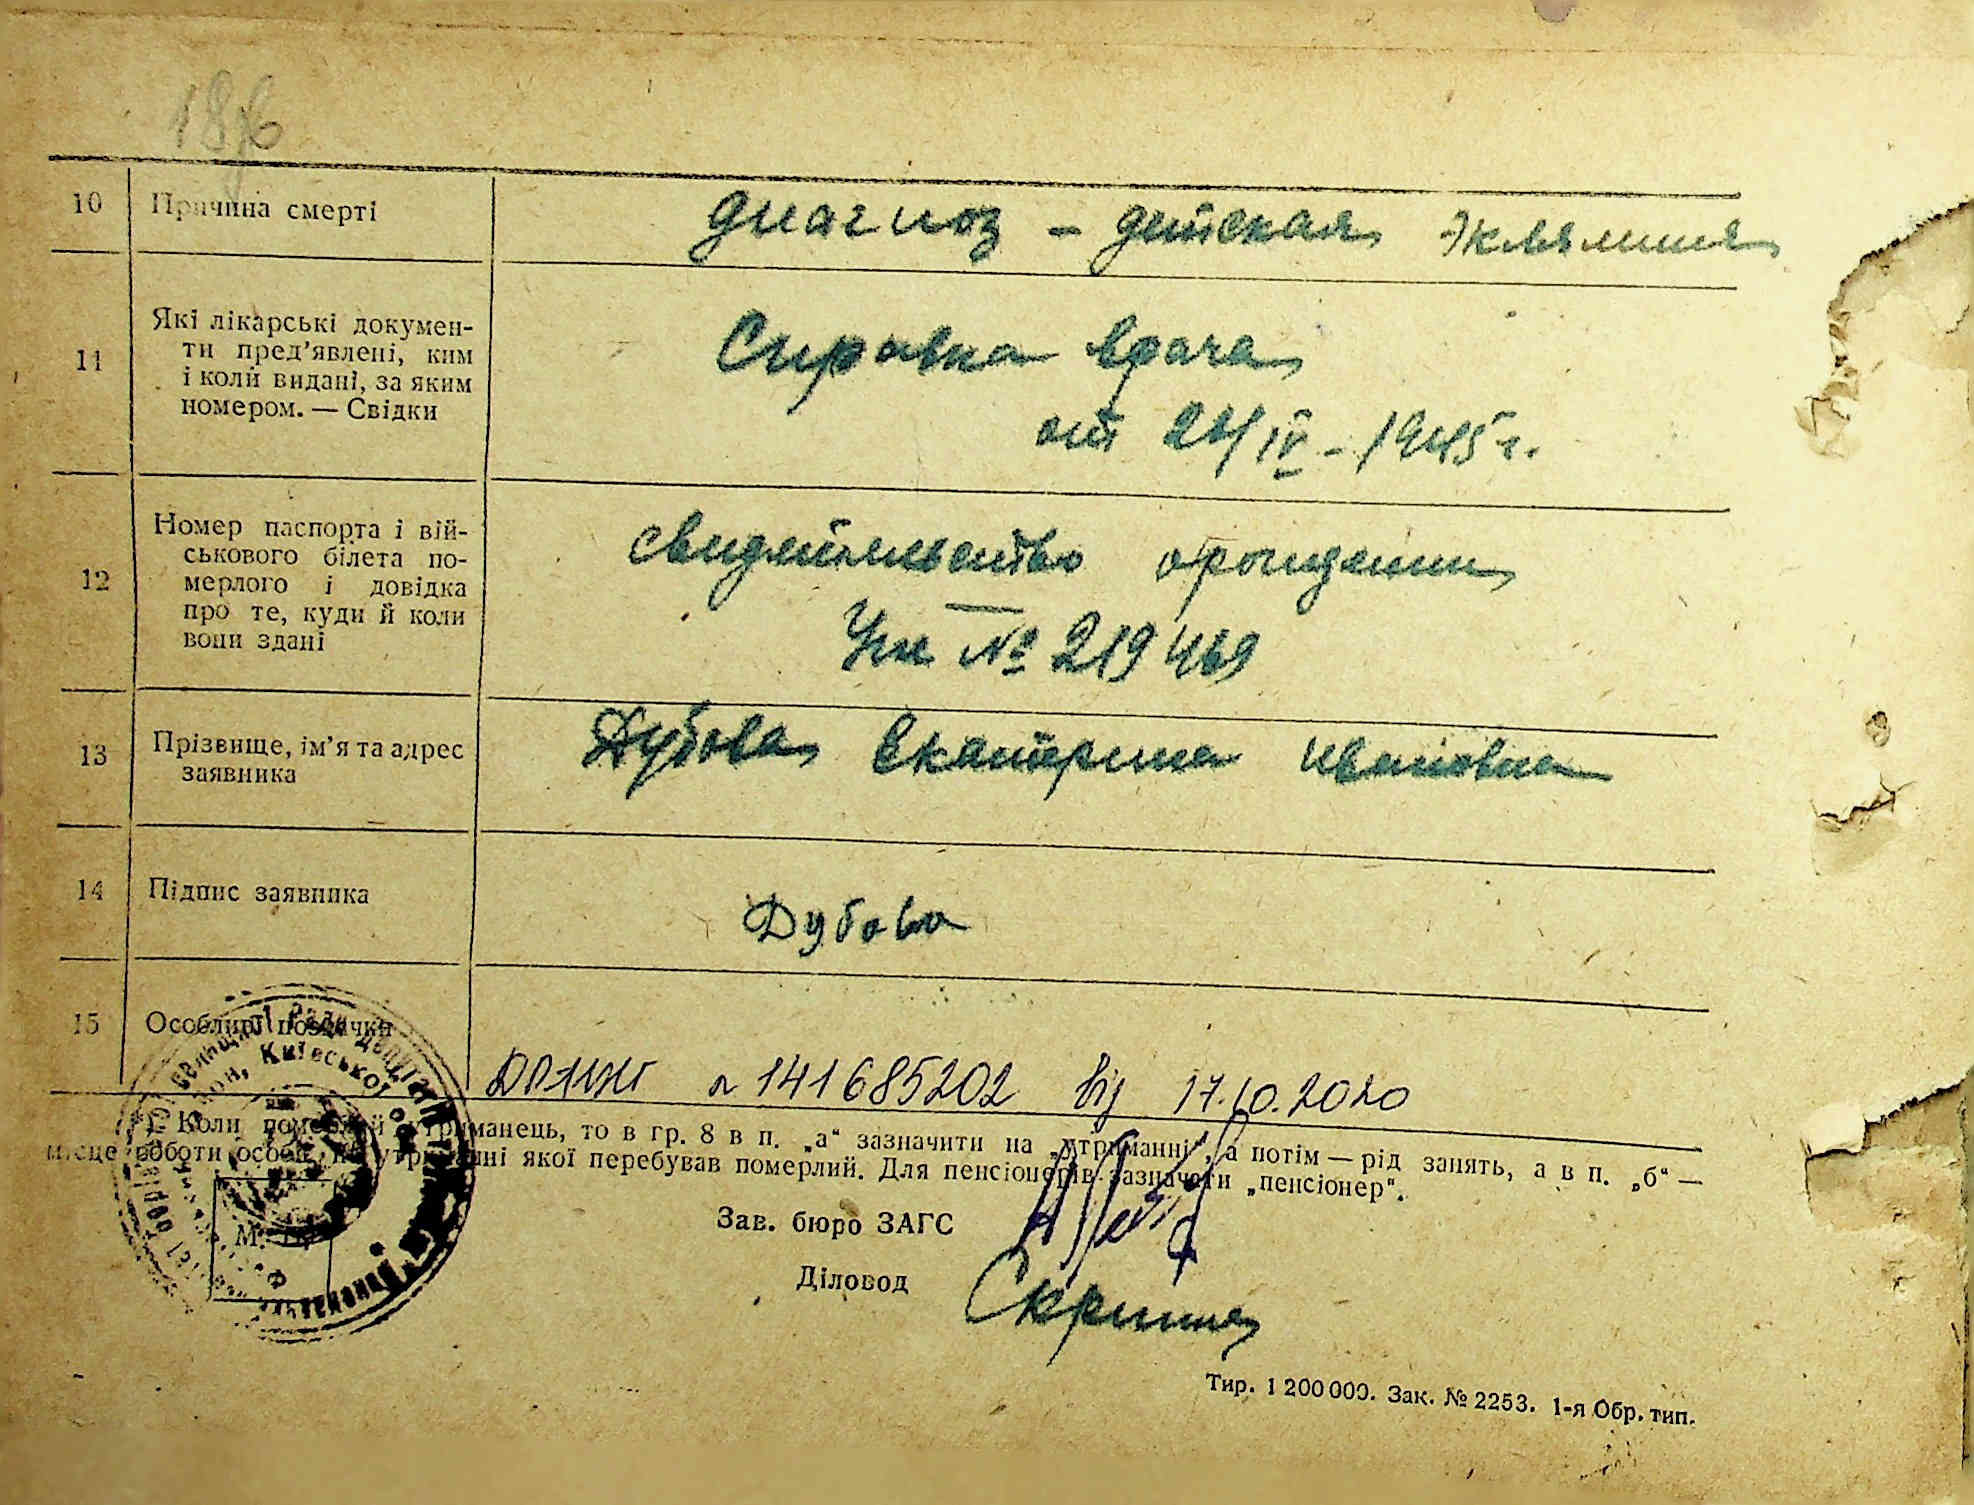 186
10 Причина смерті
диагноз – детская эклямпсия
11 Які лікарські докумен-
ти пред’явлені, ким
і коли видані, за яким
номером. — Свідки
Справка врача
от 24/IV – 1945 г.
12 Номер паспорта і вій-
ськового білета по-
мерлого і довідка
про те, куди й коли
вони здані
свидетельство о рождении
№ 219469
13 Прізвище, ім’я та адрес
заявника
Дубова Екатерина Ивановна
14 Підпис заявника
Дубова
15 Особливі позначки
141685202 від 17.10.2020
*) Коли померлий утриманець, то в гр. 8 в п. „а“ зазначити на „утриманні“, а потім — рід занять, а в п. „б“ —
місце роботи особи, на утриманні якої перебував померлий. Для пенсіонерів зазначати „пенсіонер“.
Зав. бюро ЗАГС
Діловод
М. П.
Тир. 1 200 000. Зак. № 2253. 1-я Обр. тип.